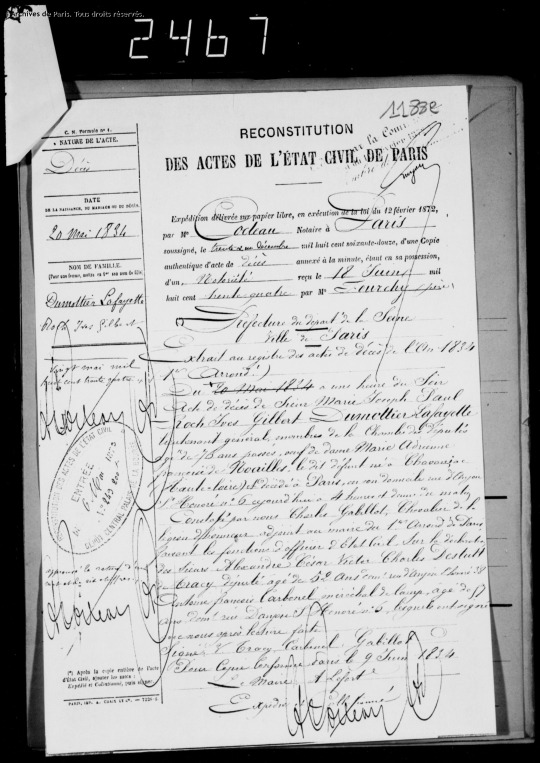 Archives de Paris. Tous droits réservés.
2467
1188e
C. N. Formule n° 1.
NATURE DE L'ACTE.
Décès
DATE
DE LA NAISSANCE, DU MARIAGE OU DU DÉCÈS.
20 Mai 1834
NOM DE FAMILLE.
(Pour une femme, mettre en 1re son nom de fille)
Dumottier Lafayette
Roch Ives Gilbert
Vingt mai mil
huit cent trente quatre
ENTRÉE
RECONSTITUTION
DES ACTES DE L'ÉTAT CIVIL DE PARIS
Expédition délivrée sur papier libre, en exécution de la loi du 12 février 1872,
par Me Cocteau Notaire à Paris
soussigné, le trente un Décembre mil huit cent soixante-douze, d'une Copie
authentique d'acte de décès annexé à la minute, étant en sa possession,
d'un Notoriété reçu le 18 Juin mil
huit cent trente quatre par Me
Préfecture du départ de la Seine
Ville de Paris
Extrait au registre des actes de décès de l'An 1834
1er Arrondt)
Du 20 Mai 1834 à une heure du Soir
Acte de décès de Sieur Marie Joseph Paul
Roch Ives Gilbert Dumottier Lafayette
lieutenant général, membre de la Chambre des Députés
de 76 ans passés, veuf de dame Marie Adrienne
françoise de Noailles, le dit défunt né à Chavaniac
(Haute Loire) et décédé à Paris, en son domicile rue d'Anjou
St Honoré n° 6 aujourd'hui à 4 heures et demie du matin
Constaté par nous Charles Gabillot, Chevalier de la
légion d'honneur adjoint au maire du 1er Arrond de Paris
faisant les fonctions d'officier d'Etat Civil. Sur la déclaration
des Sieurs Alexandre César Victor Charles Destutt
de Tracy député agé de 52 Ans rue d'Anjou St honoré 38
Antoine françois Carbonel maréchal de Camp, agé de 57
ans demt rue Honoré n° 5. lesquels ont signé
avec nous après lecture faite
Signé V. Tracy Carbonel Gabillot
Pour Copie Conforme Paris le 9 Juin 1834
Le Maire
(*) Après la copie entière de l'acte
d'État Civil, ajouter les mots :
Expédié et Collationné, puis signer.